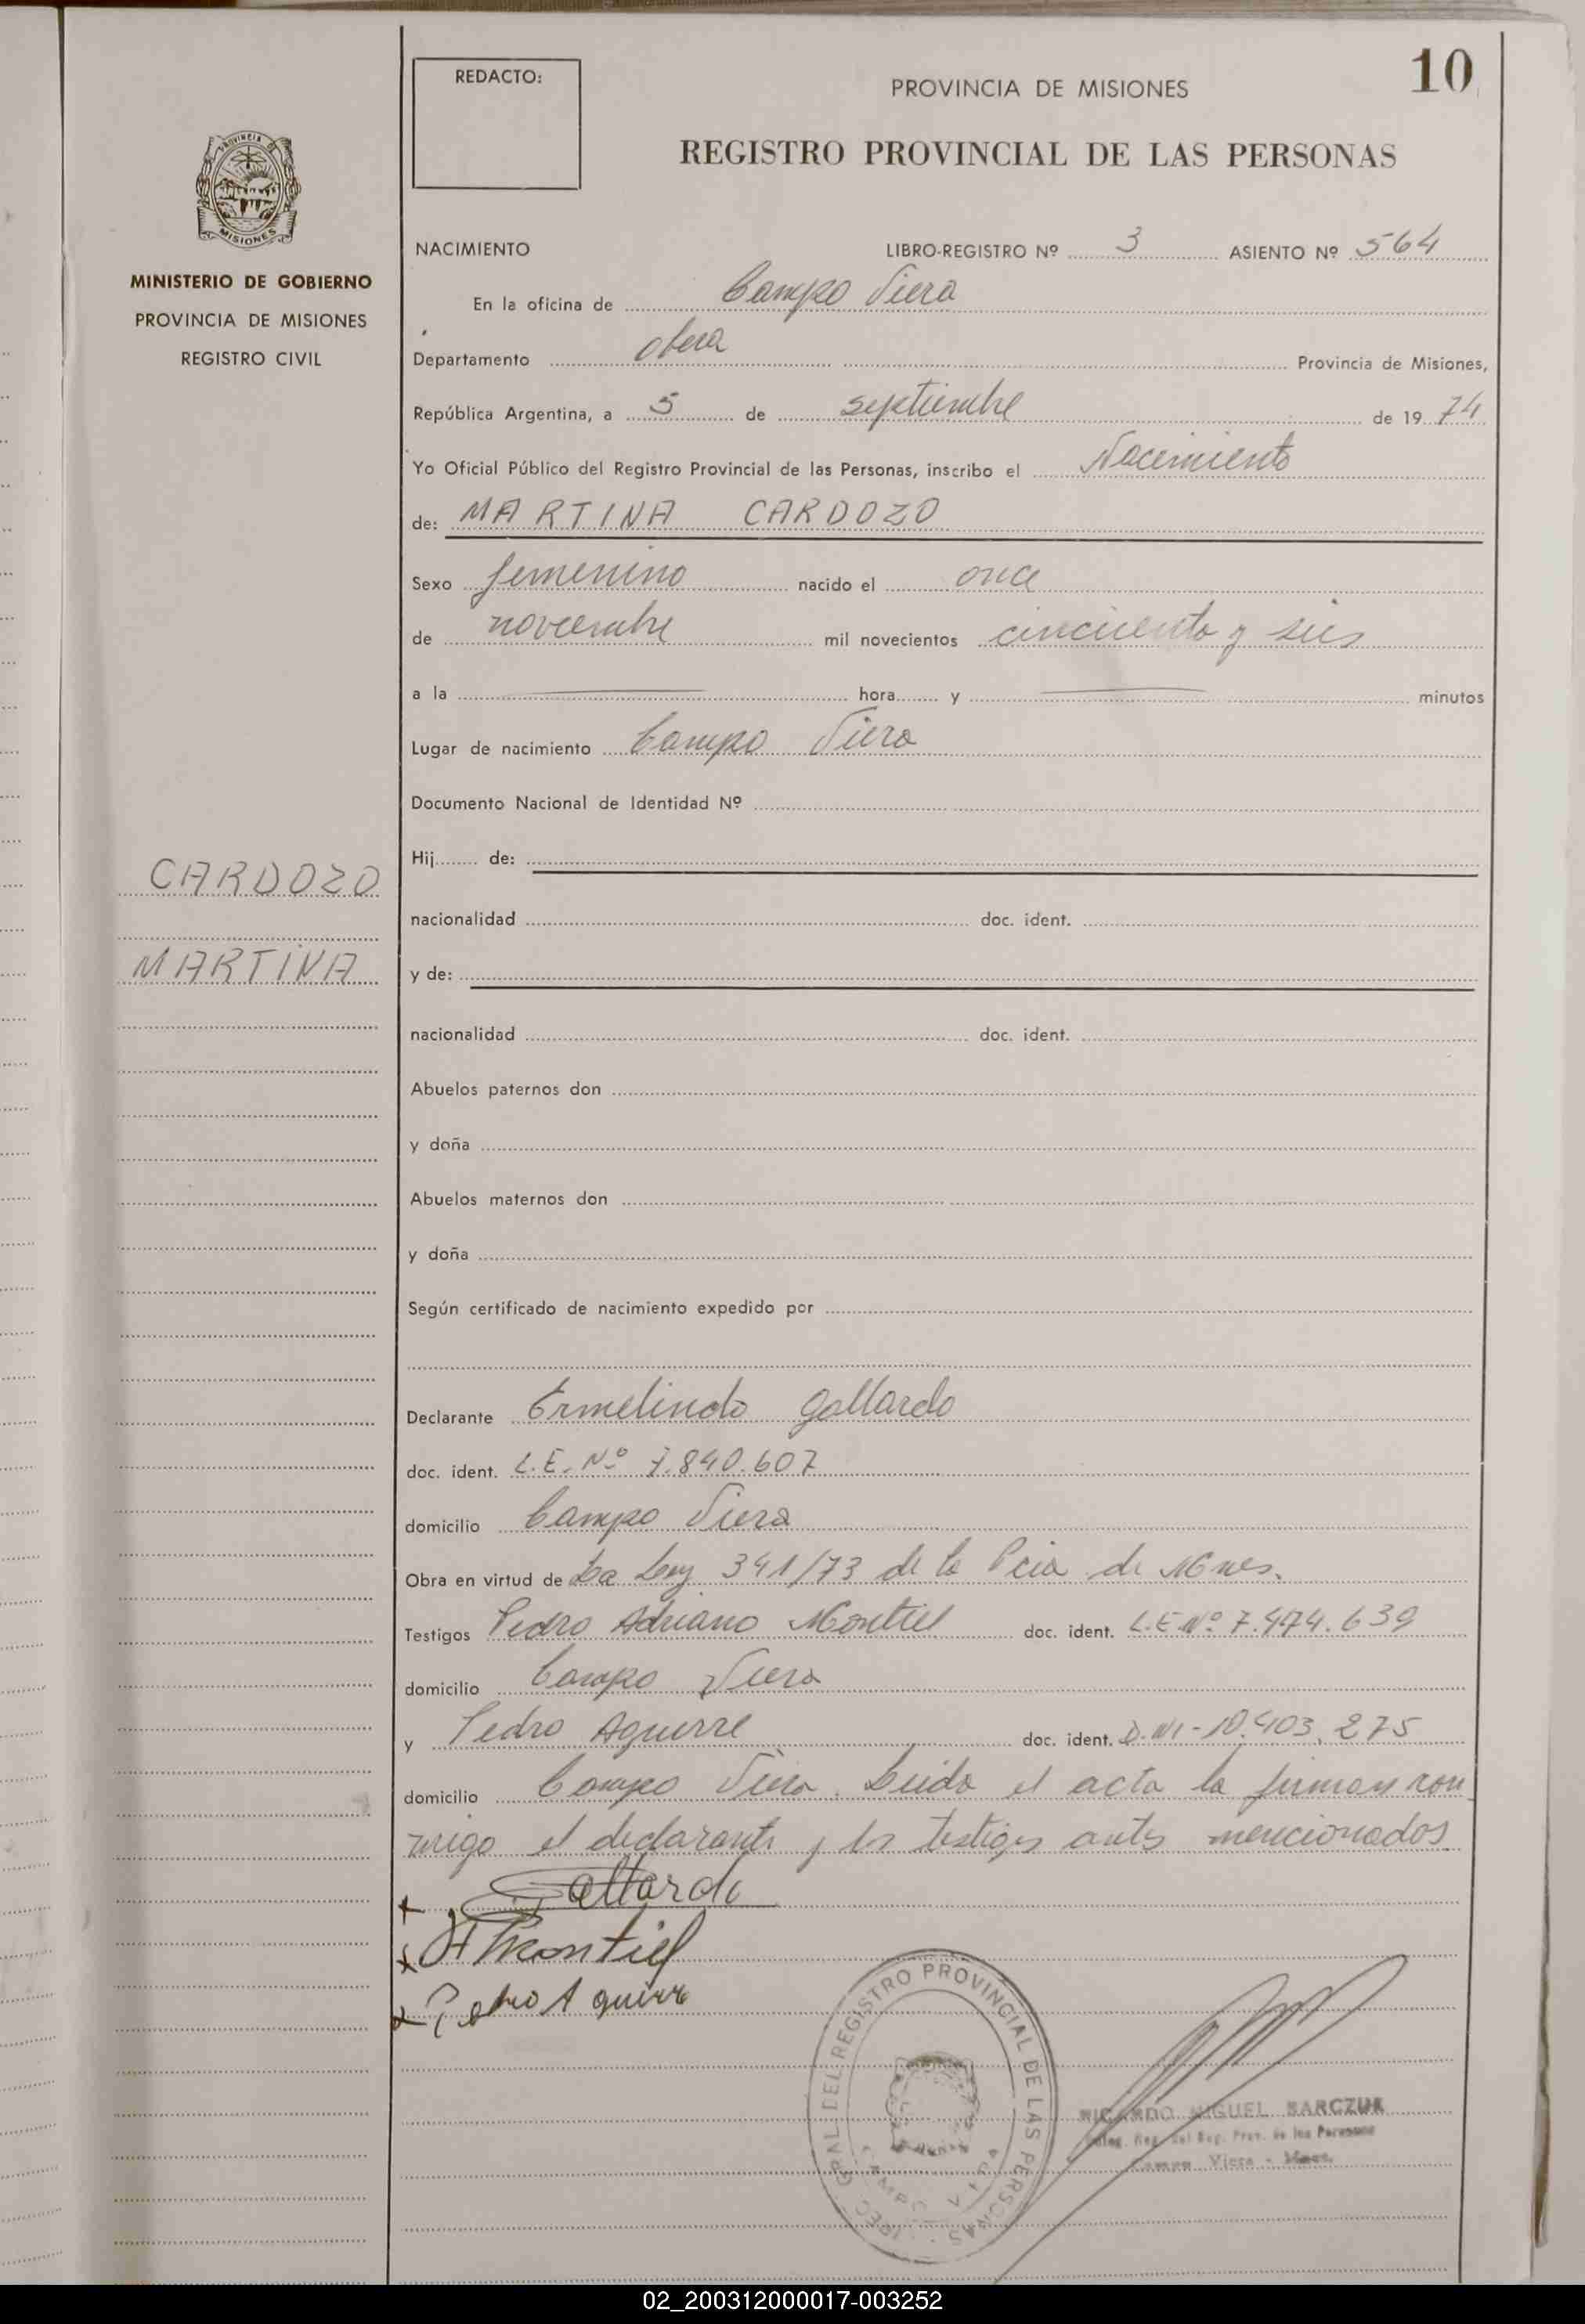 REDACTO:
PROVINCIA DE MISIONES
10
REGISTRO PROVINCIAL DE LAS PERSONAS
PROVINCIA DE
MISIONES
MINISTERIO DE GOBIERNO
PROVINCIA DE MISIONES
REGISTRO CIVIL
CARDOZO
MARTINA
NACIMIENTO LIBRO-REGISTRO Nº 3 ASIENTO Nº 564
En la oficina de Campo Viera
Departamento Obera Provincia de Misiones,
República Argentina, a 5 de septiembre de 19 74
Yo Oficial Público del Registro Provincial de las Personas, inscribo el Nacimiento
de: MARTINA CARDOZO
Sexo femenino nacido el once
de noviembre mil novecientos cincuenta y seis
a la hora y minutos
Lugar de nacimiento Campo Viera
Documento Nacional de Identidad Nº
Hij de:
nacionalidad doc. ident.
y de:
nacionalidad doc. ident.
Abuelos paternos don
y doña
Abuelos maternos don
y doña
Según certificado de nacimiento expedido por
Declarante Ermelindo Gallardo
doc. ident. L.E. Nº 7.840.607
domicilio Campo Viera
Obra en virtud de La Ley 341/73 de la Pcia de Mnes.
Testigos Pedro Adriano Montiel doc. ident. L.E Nº 7.474.639
domicilio Campo Viera
y Pedro Aguirre doc. ident. D.NI-10.403.275
domicilio Campo Viera. Leida el acta la firman con
migo el declarante y los testigos antes mencionados
Gallardo
Montiel
Pedro Aguirre
GRAL. DEL REGISTRO PROVINCIAL DE LAS PERSONAS
CAMPO VIERA
RICARDO MIGUEL SARCZUK
Reg. del Reg. Prov. de las Personas
Campo Viera - Mnes.
02_200312000017-003252